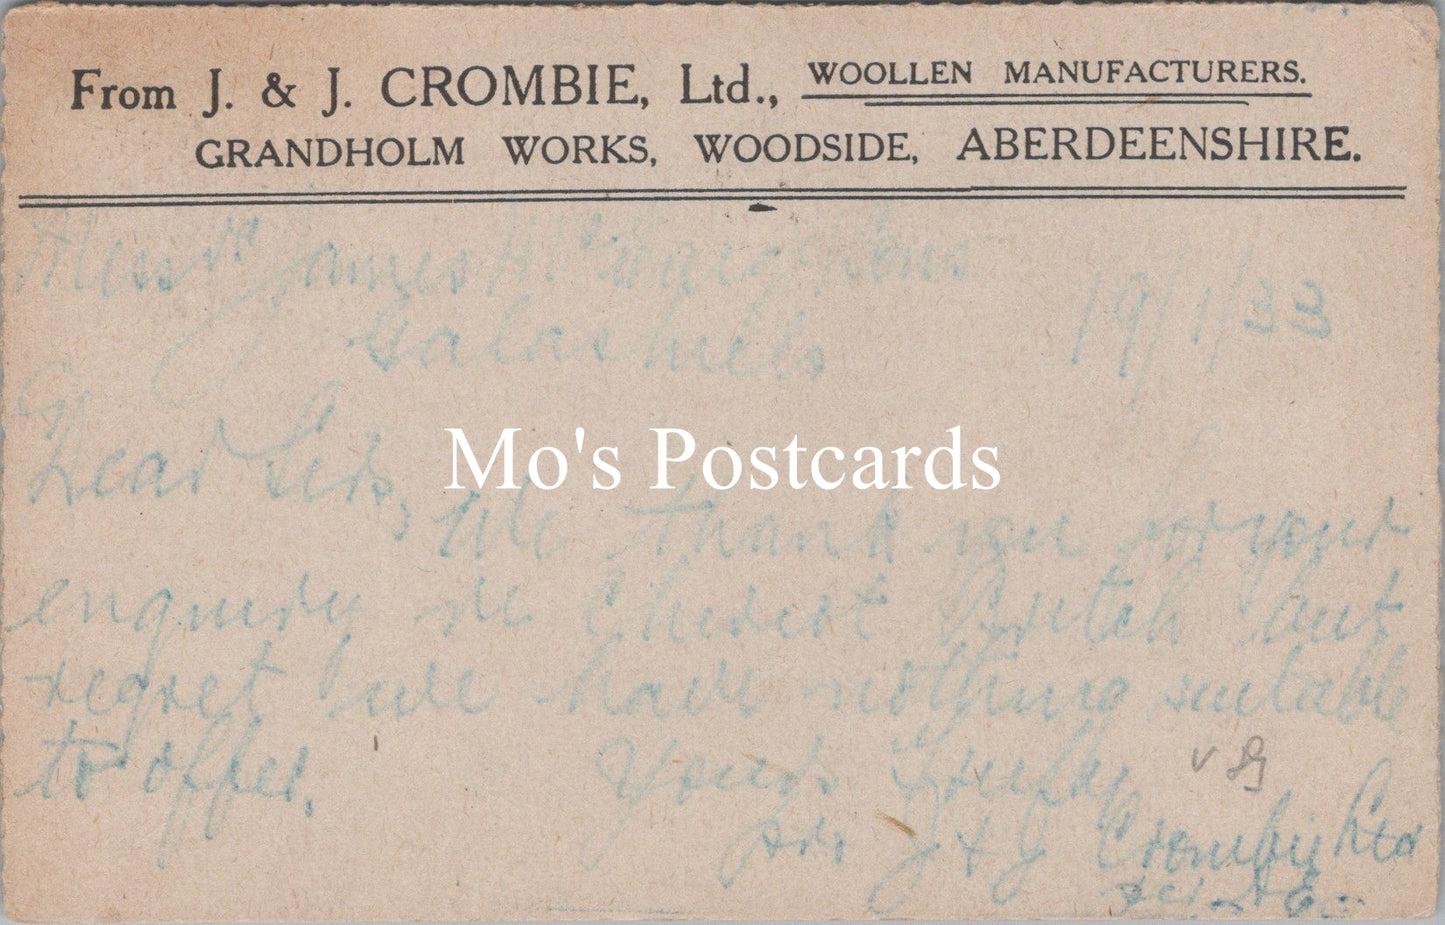 From J. & J. CROMBIE, Ltd., WOOLLEN MANUFACTURERS.
GRANDHOLM WORKS, WOODSIDE, ABERDEENSHIRE.
Messrs James Sons
Galashiels 19/1/33
Dear Sirs,
Mo's Postcards
We thank you for your
enquiry re Cheviot but
regret we have nothing suitable
to offer.
Yours truly
pr J & J Crombie Ltd